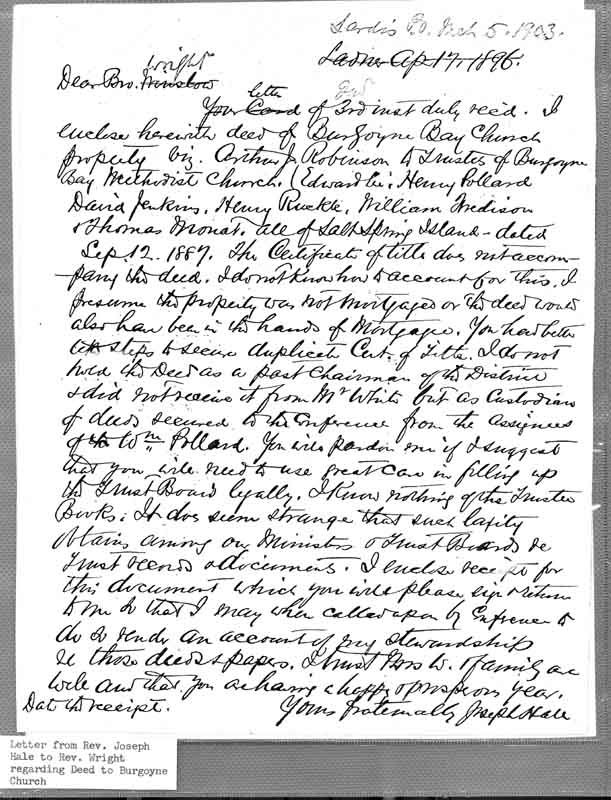 Sardis Bo. Mch 5. 1903.
Ladner Ap 17, 1896.
Wright
Dear Bro. Winslow
letter
Your Card of 3rd inst duly rec'd. I
enclose herewith deed of Burgoyne Bay Church
property viz. Arthur J Robinson to Trustees of Burgoyne
Bay Methodist Church. (Edward Lee, Henry Pollard
David Jenkins, Henry Ruckle, William
& Thomas Mouat. all of Salt Spring Island - dated
Sep 12. 1887. The Certificate of title does not accom-
-pany the deed. I do not know how to account for this. I
presume the property was not Mortgaged or the deed would
also have been in the hands of Mortgagee. You had better
steps to secure duplicate Cert. of Title. I do not
hold the Deed as a past Chairman of the District
& did not receive it from Mr White but as Custodian
of deeds secured to the Conference from the assignees
of Wm Pollard. You will pardon me if I suggest
that you will need to use great care in filling up
the Trust Board legally. I know nothing of the Trustee
Books. It does seem strange that such laxity
obtains among our Ministers & Trust Boards re
Trust records & documents. I enclose receipt for
this document which you will please sign & return
to me so that I may when called upon by Conference to
do so render an account of my stewardship
re those deeds & papers. I trust Mrs W. & family are
well and that you are having a happy & prosperous year.
Date the receipt. Yours fraternally Joseph Hale
Letter from Rev. Joseph
Hale to Rev. Wright
regarding Deed to Burgoyne
Church